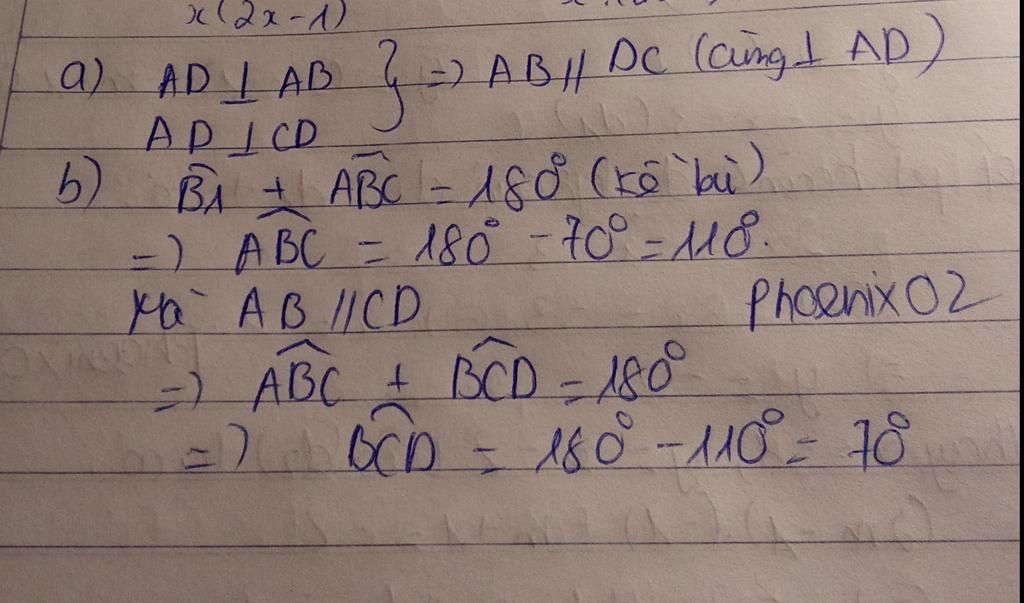 x(2x-1)
a) AD ⊥ AB } => AB // DC (cùng ⊥ AD)
AD ⊥ CD
b) B̂1 + ABC^ = 180° (kề bù)
=> ABC^ = 180° - 70° = 110°.
Mà AB // CD
phoenix02
=> ABC^ + BCD^ = 180°
=> BCD^ = 180° - 110° = 70°